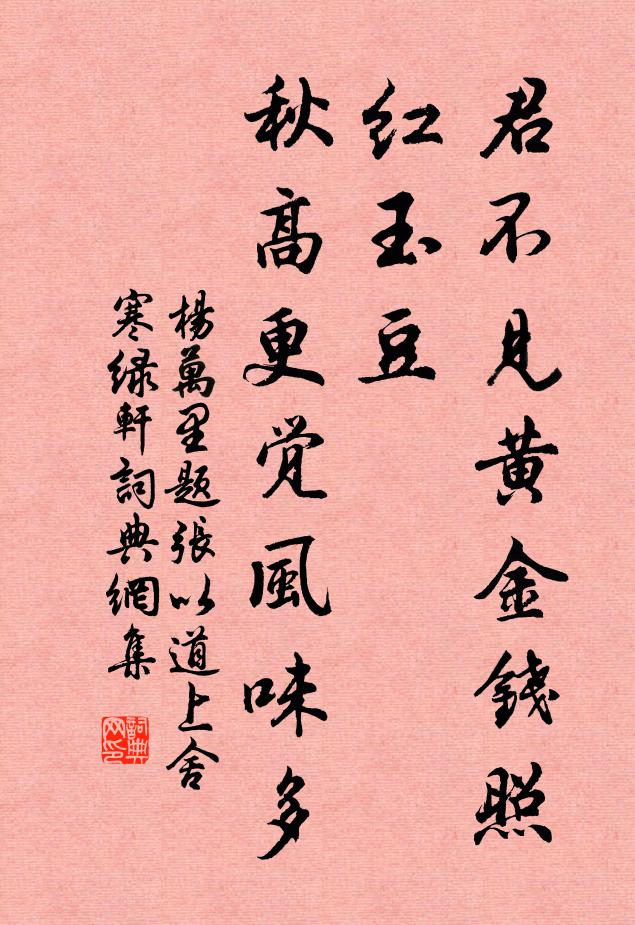 君不見黄金錢照
紅玉豆
秋高更覺風味多
楊萬里題張以道上舍
寒綠軒詞典網集
詞典网印